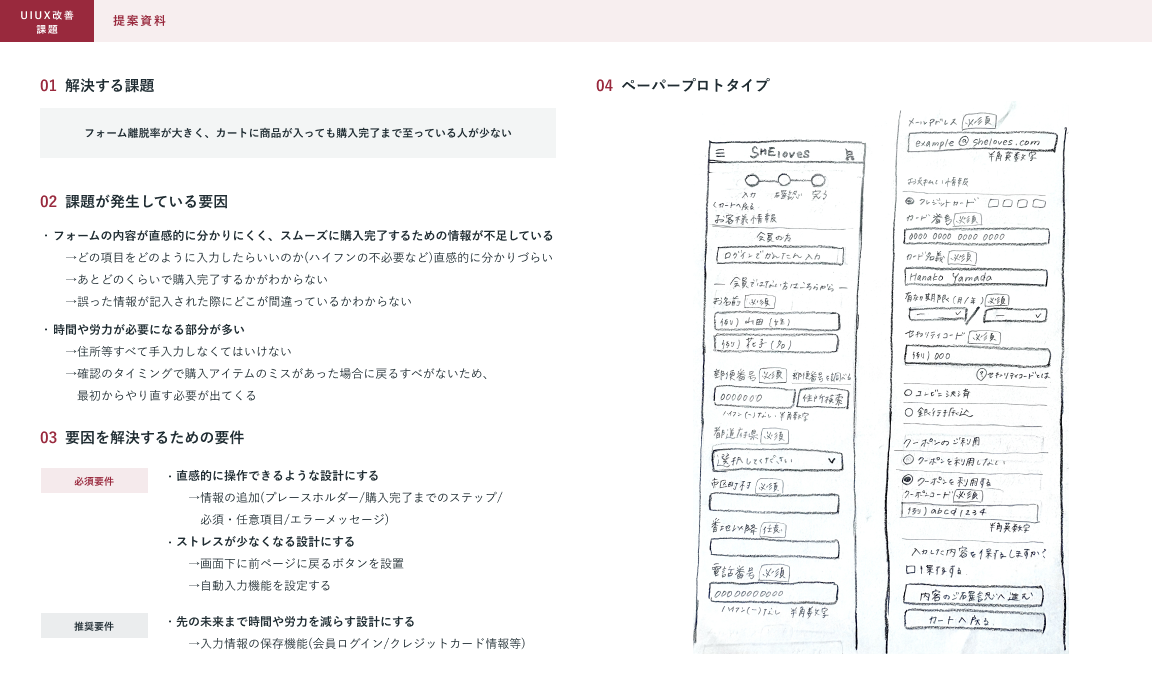 UIUX改善
課題
提案資料
01 解決する課題
フォーム離脱率が大きく、カートに商品が入っても購入完了まで至っている人が少ない
02 課題が発生している要因
・フォームの内容が直感的に分かりにくく、スムーズに購入完了するための情報が不足している
→どの項目をどのように入力したらいいのか(ハイフンの不必要など)直感的に分かりづらい
→あとどのくらいで購入完了するかがわからない
→誤った情報が記入された際にどこが間違っているかわからない
・時間や労力が必要になる部分が多い
→住所等すべて手入力しなくてはいけない
→確認のタイミングで購入アイテムのミスがあった場合に戻るすべがないため、
最初からやり直す必要が出てくる
03 要因を解決するための要件
必須要件
・直感的に操作できるような設計にする
→情報の追加(プレースホルダー/購入完了までのステップ/
必須・任意項目/エラーメッセージ)
・ストレスが少なくなる設計にする
→画面下に前ページに戻るボタンを設置
→自動入力機能を設定する
推奨要件
・先の未来まで時間や労力を減らす設計にする
→入力情報の保存機能(会員ログイン/クレジットカード情報等)
04 ペーパープロトタイプ
SHEloves
入力 ご確認 完了
くカートへ戻る
お客様情報
会員の方
ログインでかんたん入力
会員ではない方はこちらから
お名前 必須
例) 山田 (姓)
例) 花子 (名)
郵便番号 必須 郵便番号を調べる
0000000 住所検索
ハイフン(-)なし 半角数字
都道府県 必須
選択してください
市区町村 必須
番地以降 任意
電話番号 必須
00000000000
ハイフン(-)なし 半角数字
メールアドレス 必須
example @ sheloves.com
半角英数字
お支払い情報
クレジットカード
カード番号 必須
0000 0000 0000 0000
カード名義 必須
Hanako Yamada
有効期限(月/年) 必須
— / —
セキュリティコード 必須
例) 000
? セキュリティコードとは
コンビニ決済
銀行振込
クーポンのご利用
クーポンを利用しない
クーポンを利用する
クーポンコード 必須
例) abcd1234
半角英数字
入力した内容を保存しますか?
保存する
内容のご確認へ進む
カートへ戻る